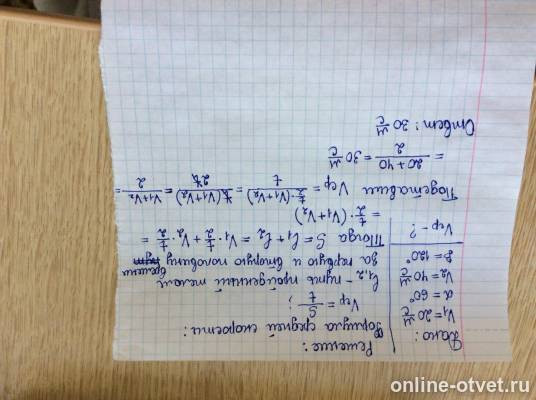 Дано:
V₁ = 20 м/с
α = 60°
V₂ = 40 м/с
β = 120°
Vср - ?
Решение:
Формула средней скорости:
Vср = S/t ;
l₁,₂ - путь пройденный телом
за первую и вторую половину времени
Тогда S = l₁ + l₂ = V₁ · t/2 + V₂ · t/2 =
= t/2 · (V₁ + V₂)
Подставим Vср = (t/2 · (V₁ + V₂))/t = t(V₁ + V₂)/2t = (V₁ + V₂)/2 =
= (20 + 40)/2 = 30 м/с
Ответ: 30 м/с
online-otvet.ru